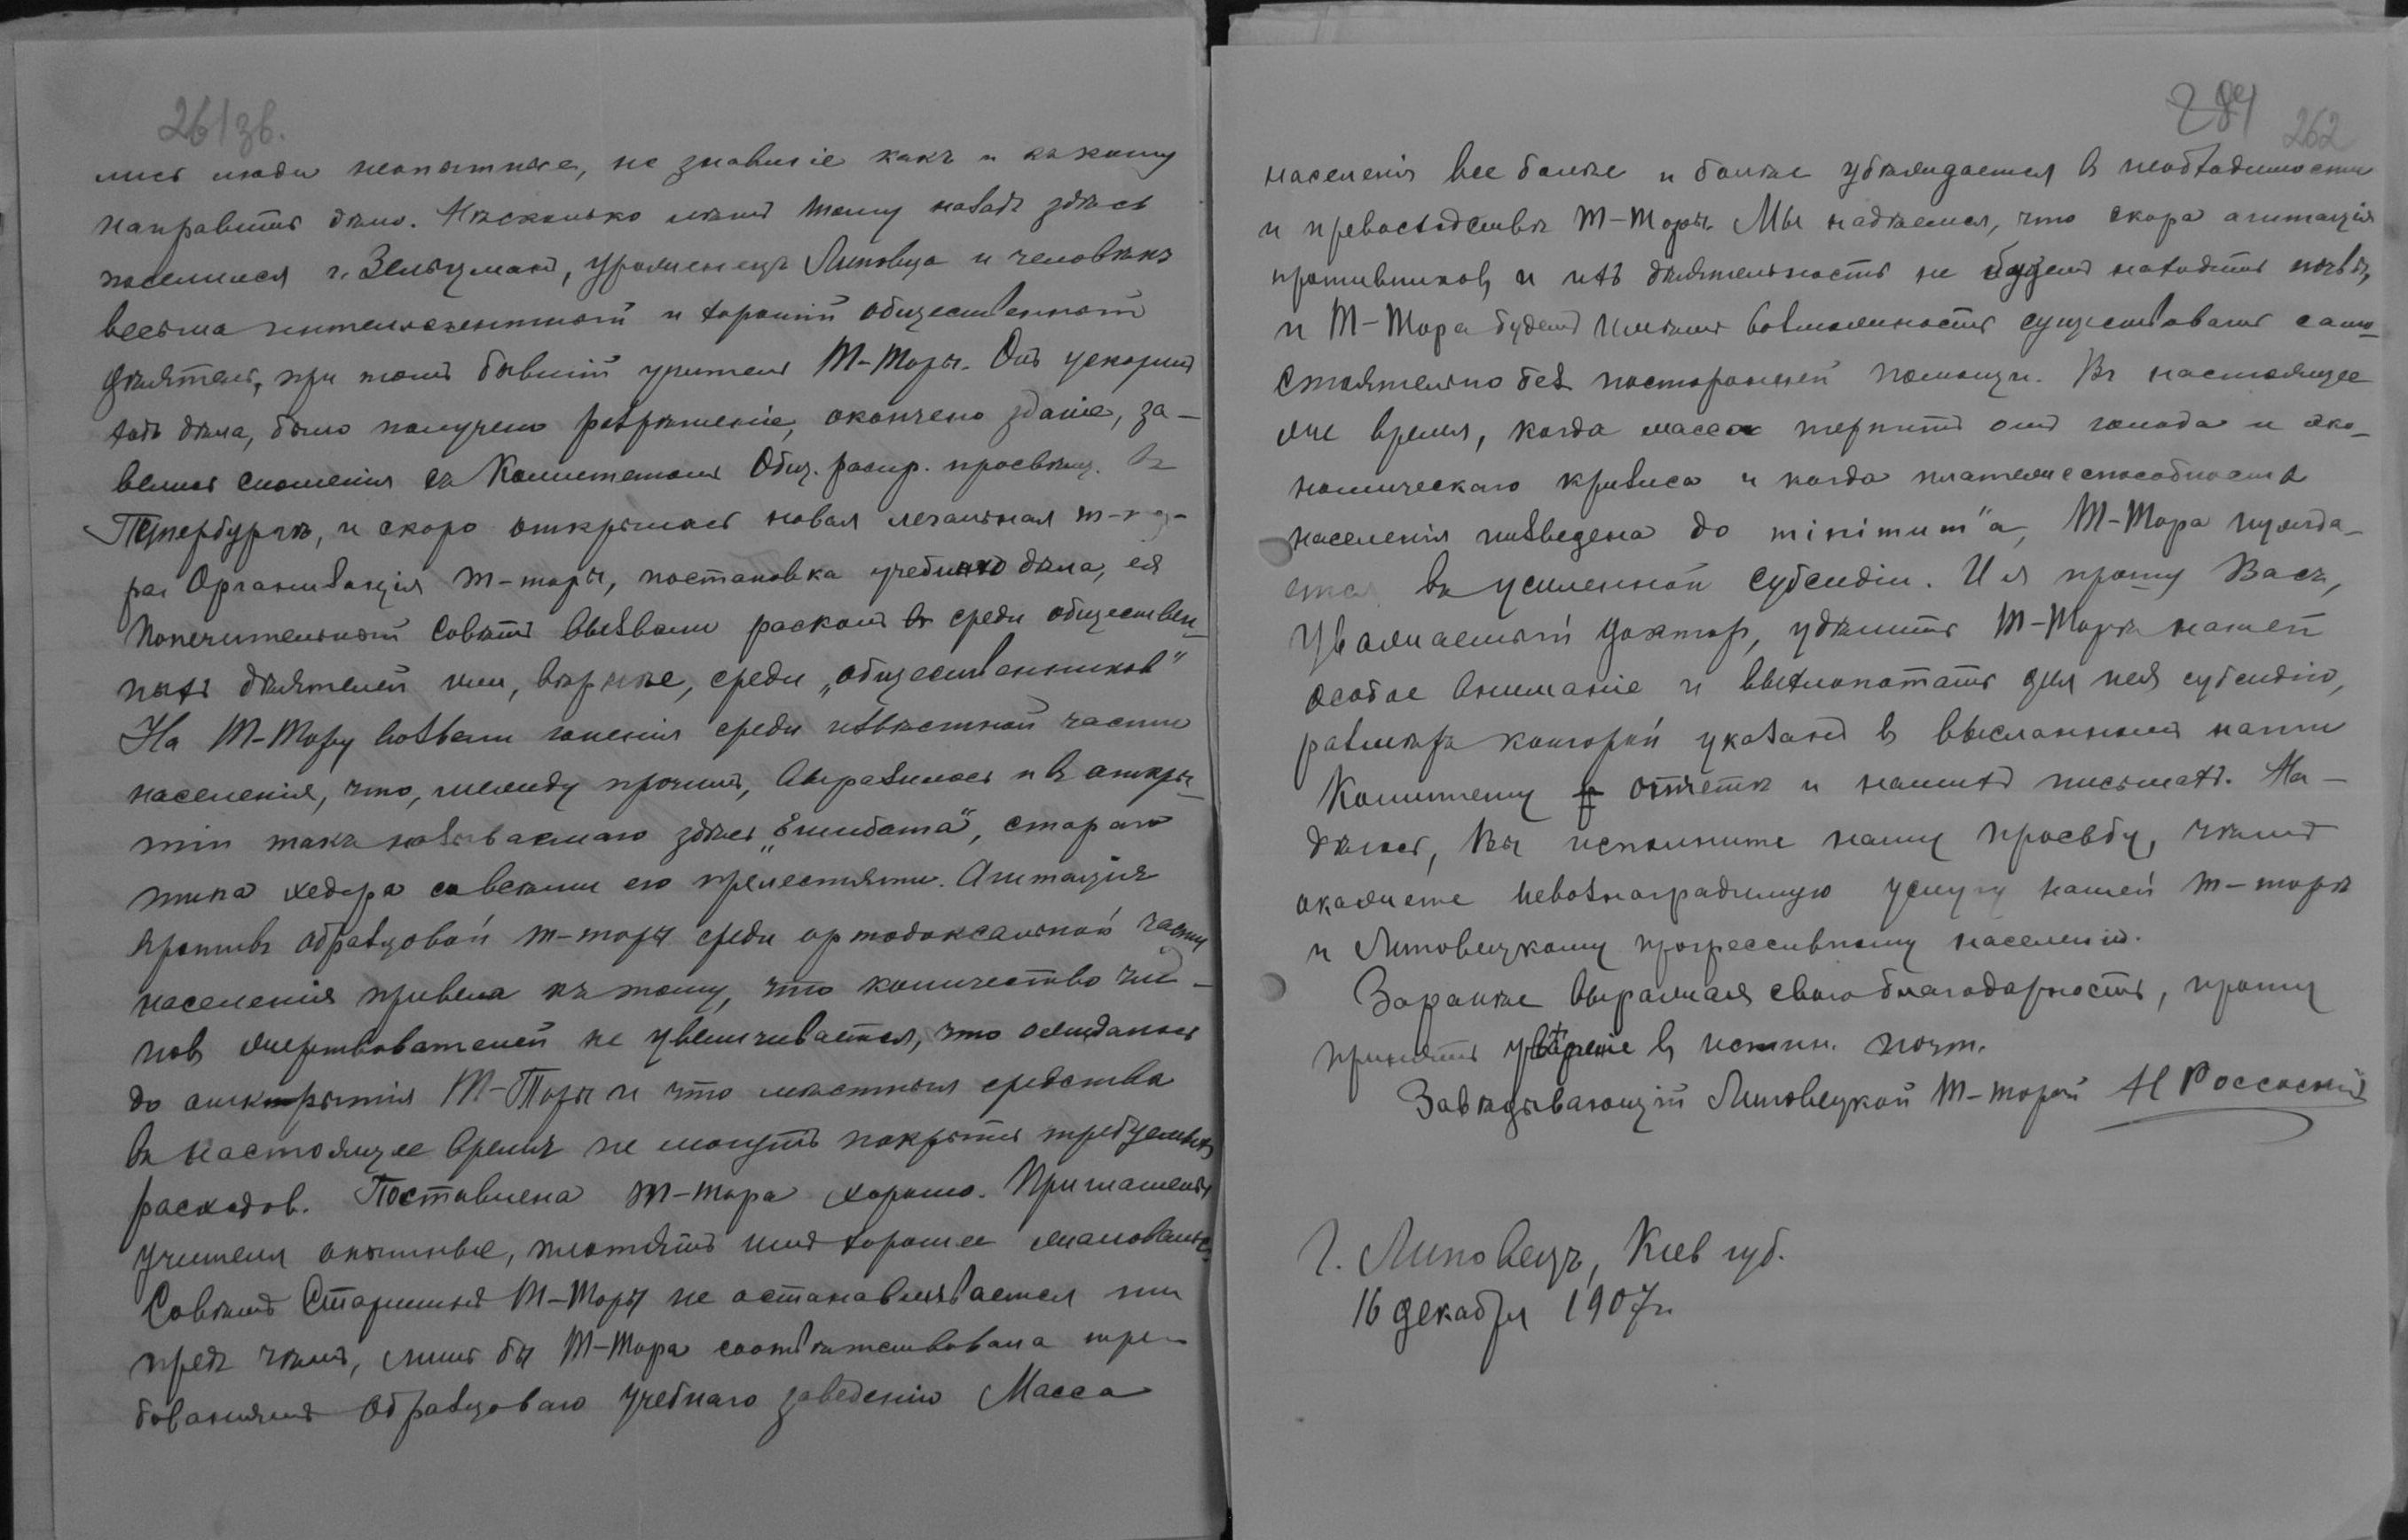 261зв.
лись люди неопытные, не знавшіе какъ и какому
направить дѣло. Нѣсколько лѣтъ тому назадъ здѣсь
поселился г. Зельцманъ, уроженецъ Липовца и человѣкъ
весьма интеллегентный и хорошій общественный
дѣятель, при томъ бывшій учитель Т-Торы. Онъ ускорилъ
ходъ дѣла, было получено разрѣшеніе, окончено зданіе, за-
велись сношенія съ Комитетомъ Общ. распр. просвѣщ. въ
Петербургѣ, и скоро открылась новая легальная т-то-
ра. Организація т-торы, постановка учебнаго дѣла, ея
попечительный Совѣтъ вызвали расколъ въ среди обществен-
ныхъ дѣятелей или, вѣрнѣе, среди „общественниковъ"
На Т-Тору возвели гоненія среди извѣстной части
населенія, что, между прочимъ, выразилось и въ откры-
тіи такъ называемаго здѣсь „Ешибота", стараго
типа хедера со всѣми его прелестями. Агитація
противъ образцовой т-торы среди ортодоксальной части
населенія привела къ тому, что количество чле-
новъ жертвователей не увеличивается, что ожидалось
до открытія Т-Торы и что мѣстныя средства
въ настоящее время не могутъ покрыть требуемыхъ
расходов. Поставлена т-тора хорошо. Приглашены
учителя опытные, платятъ имъ хорошее жалованье.
Совѣтъ Старшинъ Т-Торы не останавливается ни
предъ чѣмъ, лишь бы Т-Тора соотвѣтствовала тре-
бованіямъ образцоваго учебнаго заведенію Масса
284 262
населенія все болѣе и болѣе убѣждается в необходимости
и превосходствѣ Т-Торы. Мы надѣемся, что скоро агитація
противников, и ихъ дѣятельность не будетъ находить почвы,
и Т-Тора будетъ имѣть возможность существовать само-
стоятельно без посторонней помощи. Въ настоящее
же время, когда масса терпитъ отъ голода и эко-
номическаго кризиса и когда платежеспособность
населенія низведена до minimum"а, Т-Тора нужда-
ется въ усиленной субсидіи. И я прошу Васъ,
Уважаемый доктор, удѣлить Т-Торѣ нашей
особое вниманіе и выхлопотать для нея субсидію,
размѣръ которой указанъ в высланномъ нами
Комитету отчетѣ и нашихъ письмахъ. На-
дѣюсь, Вы исполните нашу просьбу, чѣмъ
окажете невознаградимую услугу нашей т-торѣ
и Липовецкому прогрессивному населенію.
Заранѣе выражая свою благодарность, прошу
принять увѣреніе в истин. почт.
Завѣдывающій Липовецкой Т-торой Н Россоскій
Г. Липовецъ, Кіев губ.
16 декабря 1907г.